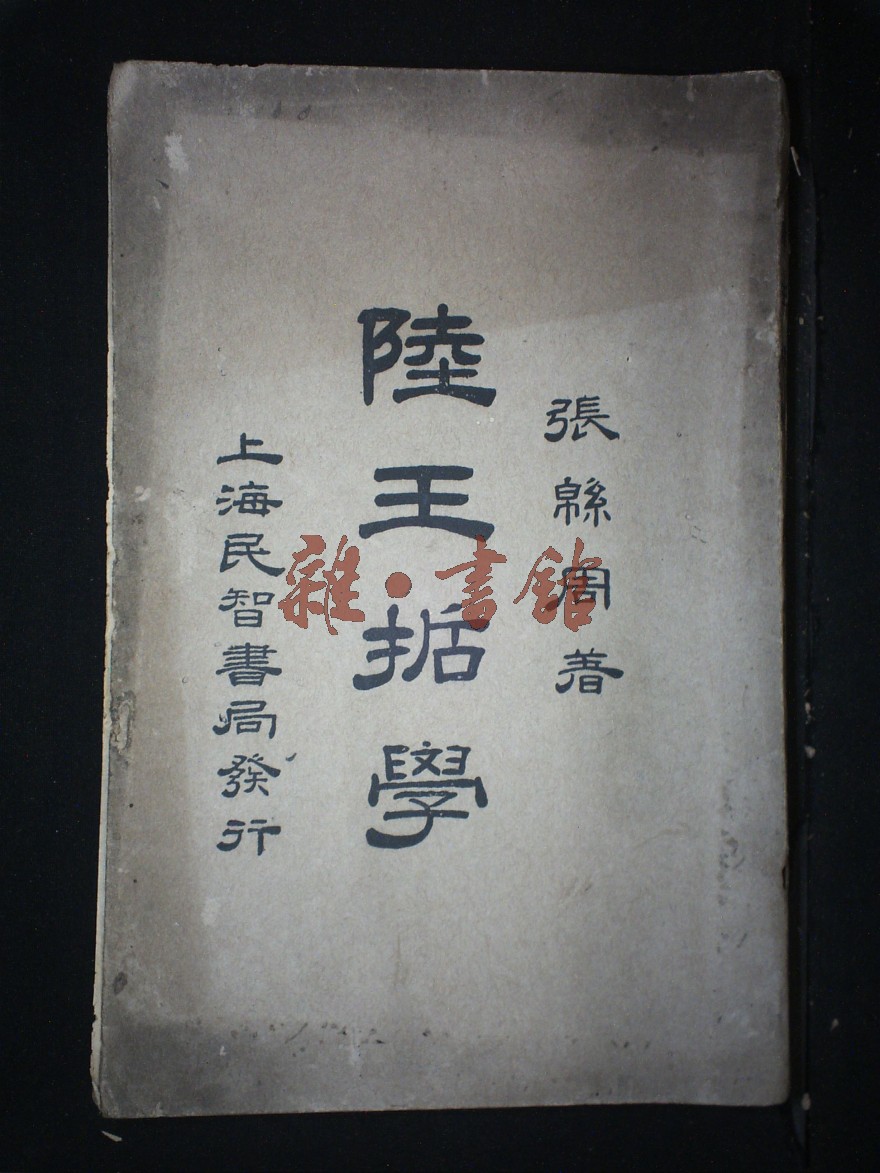 張緜周著
陸王哲學
上海民智書局發行
雜·書館